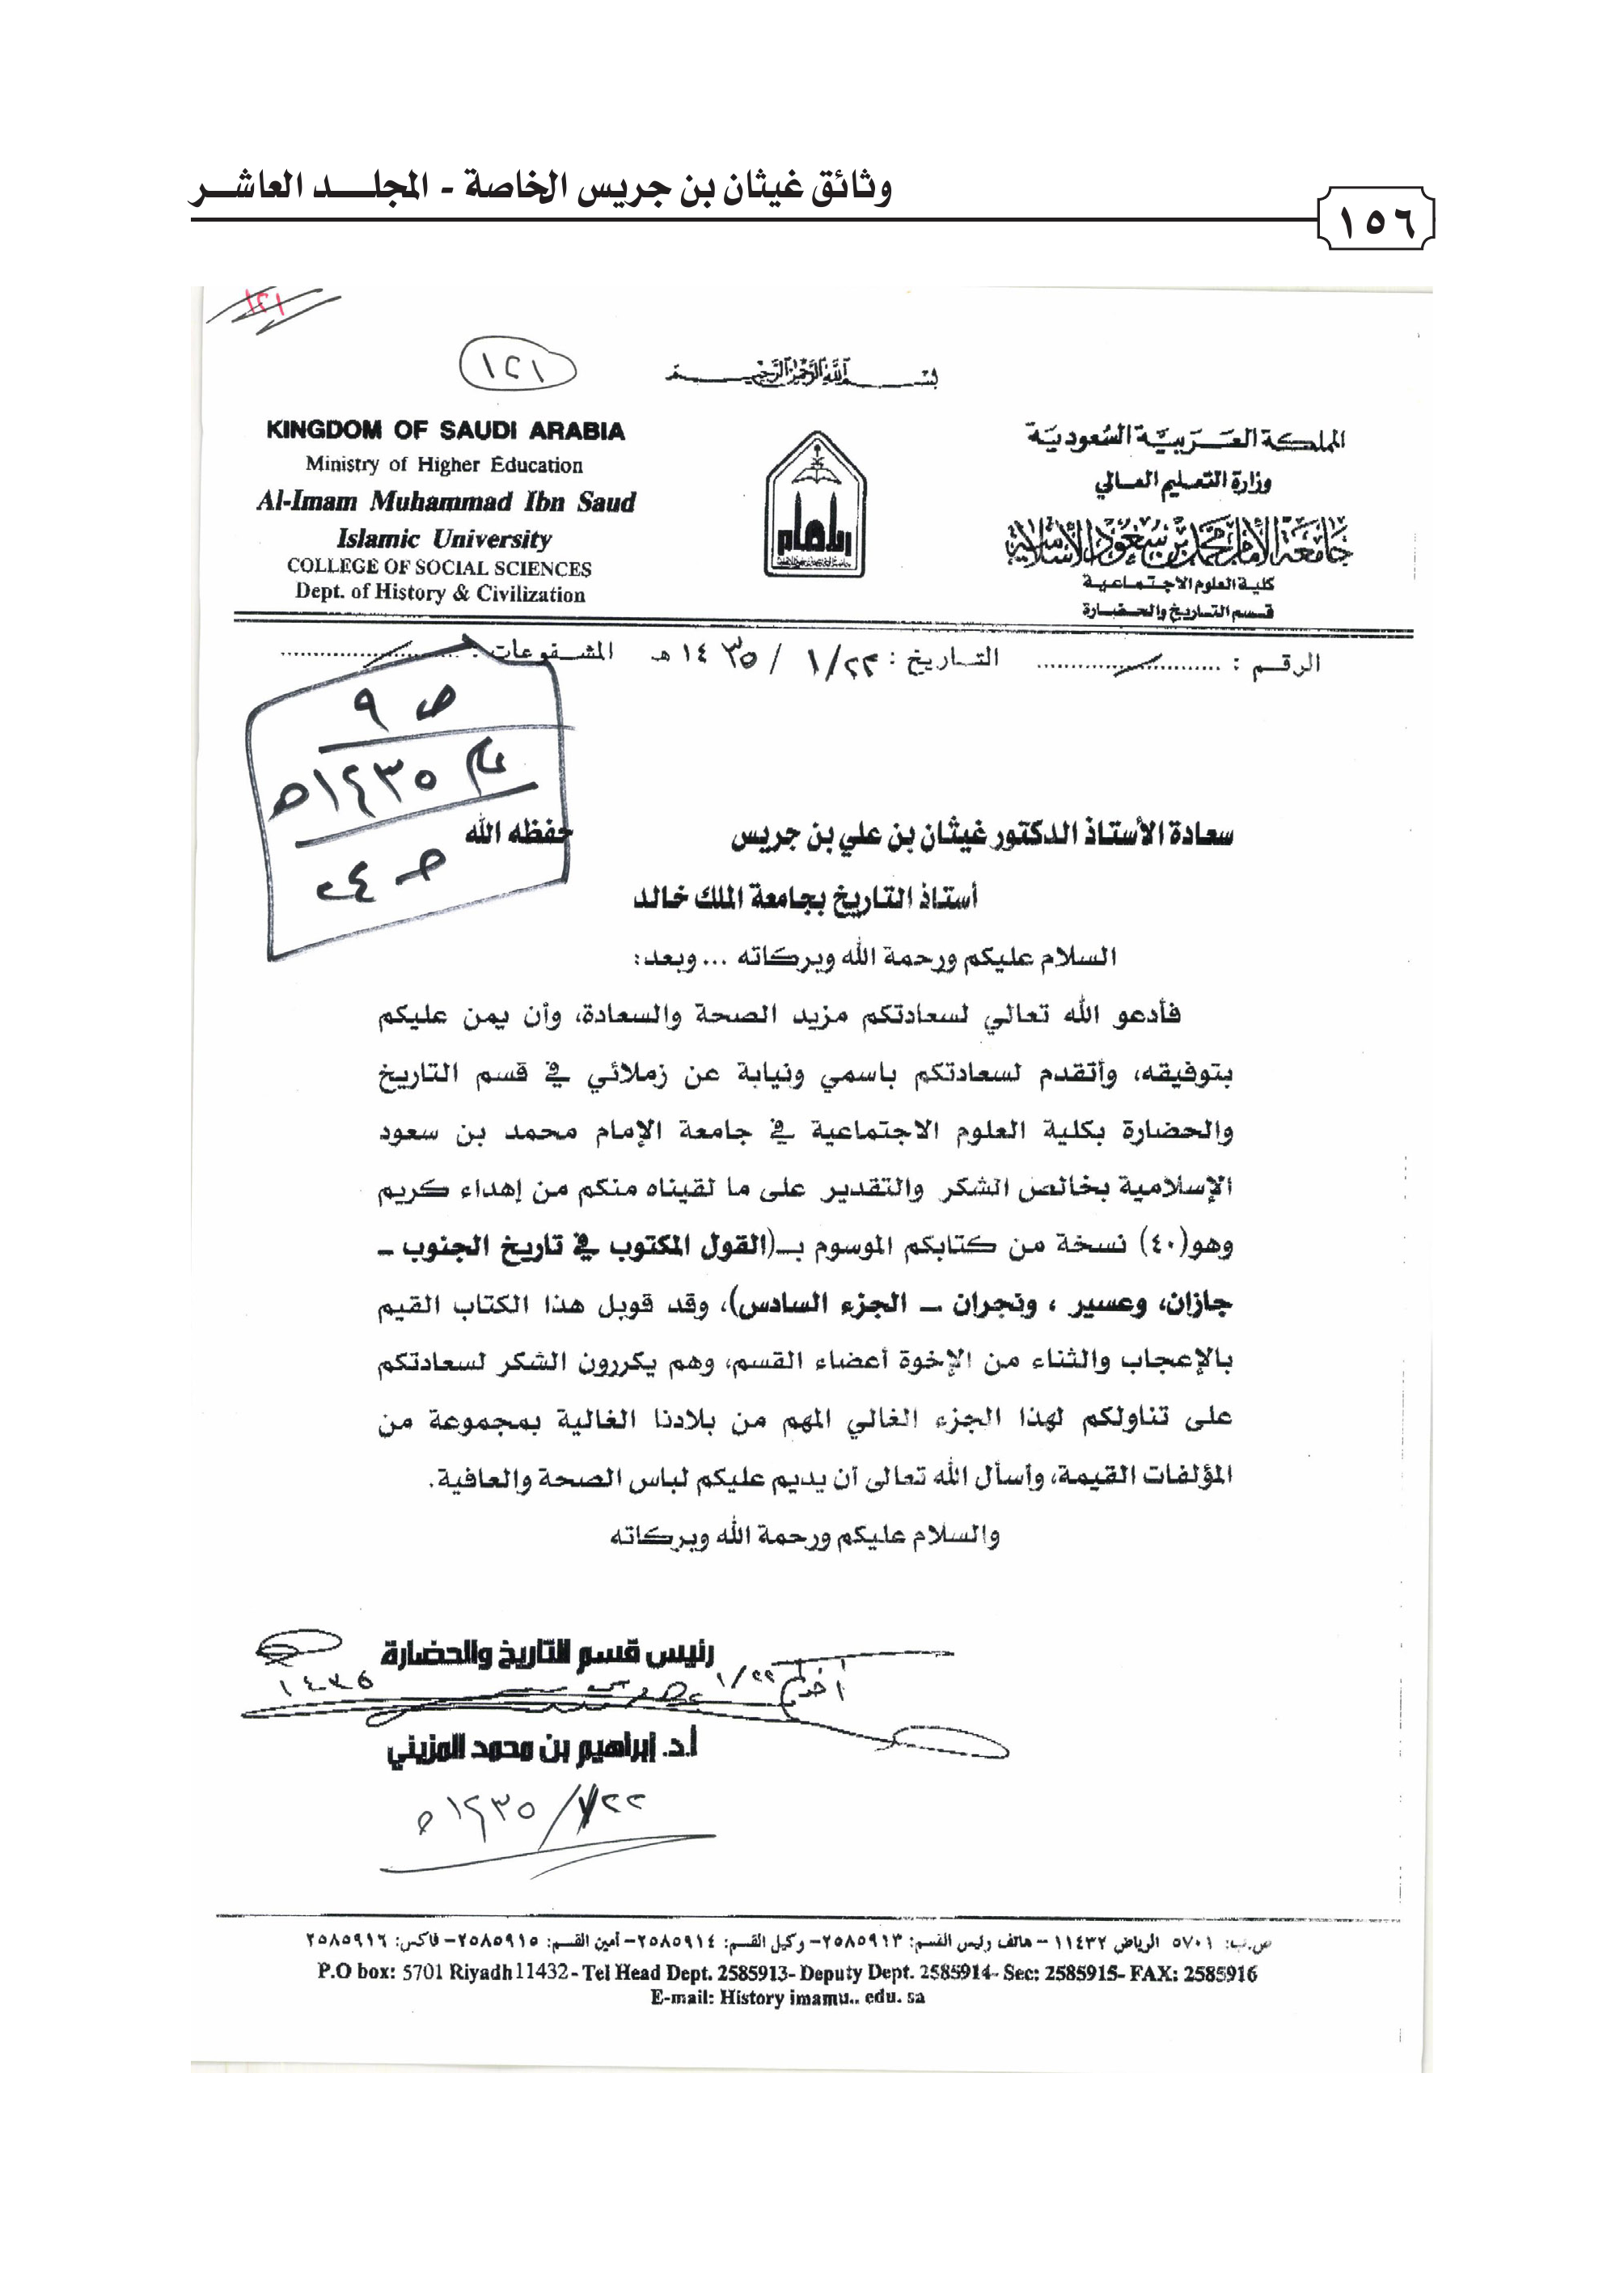 وثائق غيثان بن جريس الخاصة - المجلـــد العاشـــر
١٥٦
١٢١
١٢١
بسم الله الرحمن الرحيم
KINGDOM OF SAUDI ARABIA
Ministry of Higher Education
Al-Imam Muhammad Ibn Saud
Islamic University
COLLEGE OF SOCIAL SCIENCES
Dept. of History & Civilization
المملكة العربية السعودية
وزارة التعليم العالي
جامعة الإمام محمد بن سعود الإسلامية
كلية العلوم الاجتماعية
قسم التاريخ والحضارة
الرقم : .................... التاريخ : ٢٢/ ١ / ١٤٣٥ هـ المشفوعات : ....................
ص ٩
١٤٣٥هـ
سعادة الأستاذ الدكتور غيثان بن علي بن جريس حفظه الله
أستاذ التاريخ بجامعة الملك خالد
السلام عليكم ورحمة الله وبركاته ... وبعد:
فأدعو الله تعالي لسعادتكم مزيد الصحة والسعادة، وأن يمن عليكم
بتوفيقه، وأتقدم لسعادتكم باسمي ونيابة عن زملائي في قسم التاريخ
والحضارة بكلية العلوم الاجتماعية في جامعة الإمام محمد بن سعود
الإسلامية بخالص الشكر والتقدير على ما لقيناه منكم من إهداء كريم
وهو(٤٠) نسخة من كتابكم الموسوم بـ(القول المكتوب في تاريخ الجنوب –
جازان، وعسير ، ونجران – الجزء السادس)، وقد قوبل هذا الكتاب القيم
بالإعجاب والثناء من الإخوة أعضاء القسم، وهم يكررون الشكر لسعادتكم
على تناولكم لهذا الجزء الغالي المهم من بلادنا الغالية بمجموعة من
المؤلفات القيمة، وأسأل الله تعالى أن يديم عليكم لباس الصحة والعافية.
والسلام عليكم ورحمة الله وبركاته
رئيس قسم التاريخ والحضارة
أخوكم ١/٢٢ ١٤٣٥
أ.د. إبراهيم بن محمد المزيني
٢٢/١/١٤٣٥هـ
ص.ب: ٥٧٠١ الرياض ١١٤٣٢ – هاتف رئيس القسم: ٢٥٨٥٩١٣– وكيل القسم: ٢٥٨٥٩١٤– أمين القسم: ٢٥٨٥٩١٥– فاكس: ٢٥٨٥٩١٦
P.O box: 5701 Riyadh11432- Tel Head Dept. 2585913- Deputy Dept. 2585914- Sec: 2585915- FAX: 2585916
E-mail: History imamu.. edu. sa